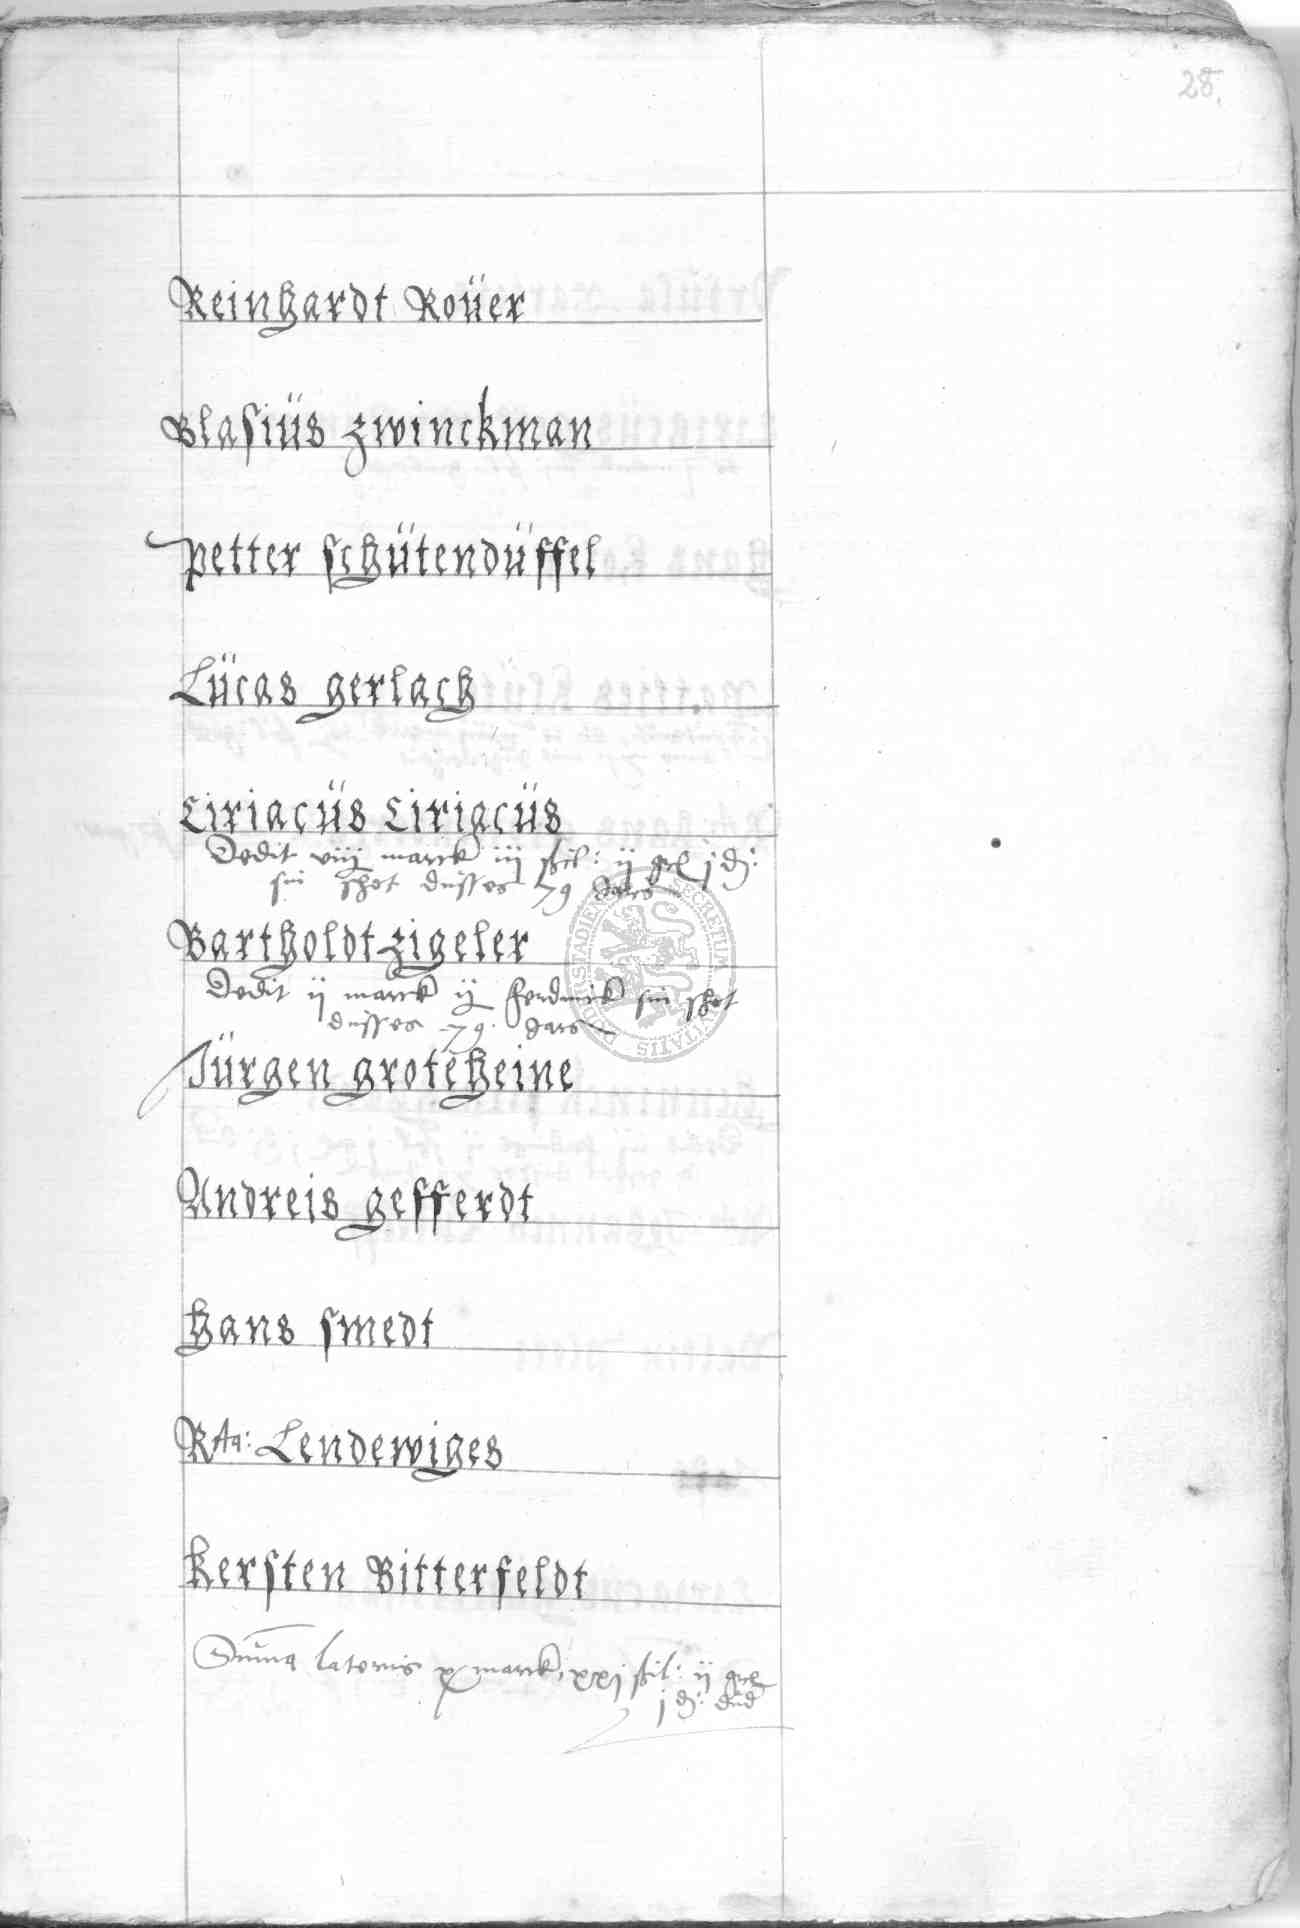 28.
Reinhardt Roüer
Blasiüs zwinckman
Petter schütendüffel
Lücas gerlach
Ciriacüs Ciriacüs
Dedit viij marck iij ßil: ij gel j d:
sin schot dusses 79 Jars
Bartholdt zigeler
Dedit ij marck ij ferdinck sin schot
dusses 79. Jars
Jürgen groteheine
Andreis gefferdt
Hans smedt
Rta: Lendewiges
Kersten Bitterfeldt
Suma lateris x marck, xxj ßil: ij gel
j d:
SECRETUM CIVITATIS